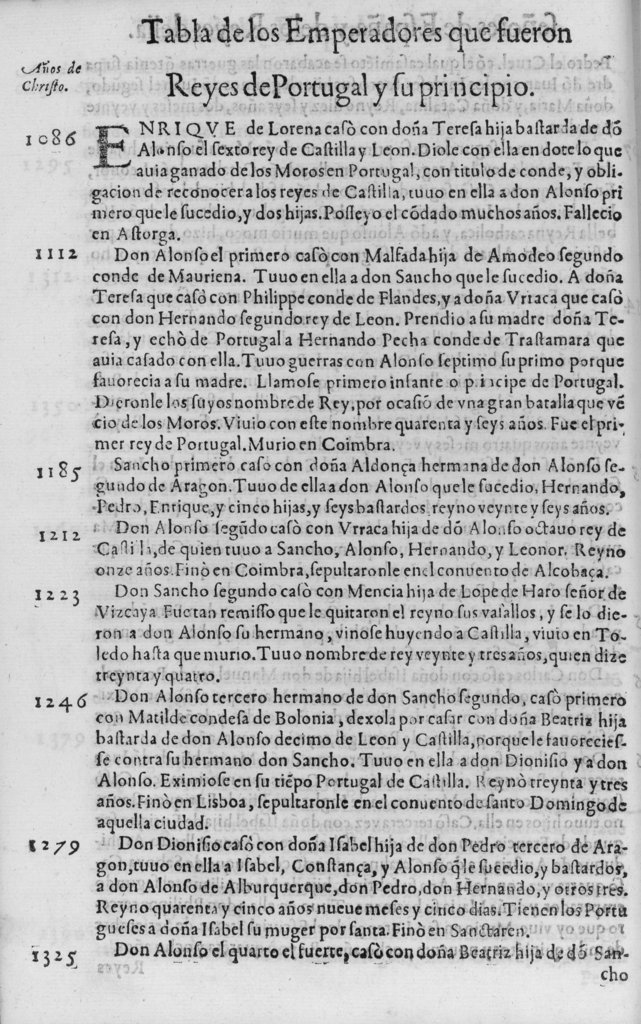 Tabla de los Emperadores que fueron
Años de
Christo.
Reyes de Portugal y su principio.
1086
ENRIQVE de Lorena casò con doña Teresa hija bastarda de dō
Alonso el sexto rey de Castilla y Leon. Diole con ella en dote lo que
auia ganado de los Moros en Portugal, con titulo de conde, y obli-
gacion de reconocer a los reyes de Castilla, tuuo en ella a don Alonso pri
mero que le sucedio, y dos hijas. Posseyo el cōdado muchos años. Fallecio
en Astorga.
1112
Don Alonso el primero casò con Malfada hija de Amodeo segundo
conde de Mauriena. Tuuo en ella a don Sancho que le sucedio. A doña
Teresa que casò con Philippe conde de Flandes, y a doña Vrraca que casò
con don Hernando segundo rey de Leon. Prendio a su madre doña Te-
resa, y echò de Portugal a Hernando Pecha conde de Trastamara que
auia casado con ella. Tuuo guerras con Alonso septimo su primo porque
fauorecia a su madre. Llamose primero infante o principe de Portugal.
Dieronle los suyos nombre de Rey, por ocasiō de vna gran batalla que vē
cio de los Moros. Viuio con este nombre quarenta y seys años. Fue el pri-
mer rey de Portugal. Murio en Coimbra.
1185
Sancho primero casò con doña Aldonça hermana de don Alonso se-
gundo de Aragon. Tuuo de ella a don Alonso que le sucedio, Hernando,
Pedro, Enrique, y cinco hijas, y seys bastardos, reyno veynte y seys años.
1212
Don Alonso segūdo casò con Vrraca hija de dō Alonso octauo rey de
Castilla, de quien tuuo a Sancho, Alonso, Hernando, y Leonor. Reyno
onze años. Finò en Coimbra, sepultaronle en el conuento de Alcobaça.
1223
Don Sancho segundo casò con Mencia hija de Lope de Haro señor de
Vizcaya. Fue tan remisso que le quitaron el reyno sus vasallos, y se lo die-
ron a don Alonso su hermano, vinose huyendo a Castilla, viuio en To-
ledo hasta que murio. Tuuo nombre de rey veynte y tres años, quien dize
treynta y quatro.
1246
Don Alonso tercero hermano de don Sancho segundo, casò primero
con Matilde condesa de Bolonia, dexola por casar con doña Beatriz hija
bastarda de don Alonso decimo de Leon y Castilla, porque le fauorecies-
se contra su hermano don Sancho. Tuuo en ella a don Dionisio y a don
Alonso. Eximiose en su tiēpo Portugal de Castilla. Reynò treynta y tres
años. Finò en Lisboa, sepultaronle en el conuento de santo Domingo de
aquella ciudad.
1279
Don Dionisio casò con doña Isabel hija de don Pedro tercero de Ara-
gon, tuuo en ella a Isabel, Constança, y Alonso q̄ le sucedio, y bastardos,
a don Alonso de Alburquerque, don Pedro, don Hernando, y otros tres.
Reyno quarenta y cinco años nueue meses y cinco dias. Tienen los Portu
gueses a doña Isabel su muger por santa. Finò en Sanctaren.
1325
Don Alonso el quarto el fuerte, casò con doña Beatriz hija de dō San-
cho